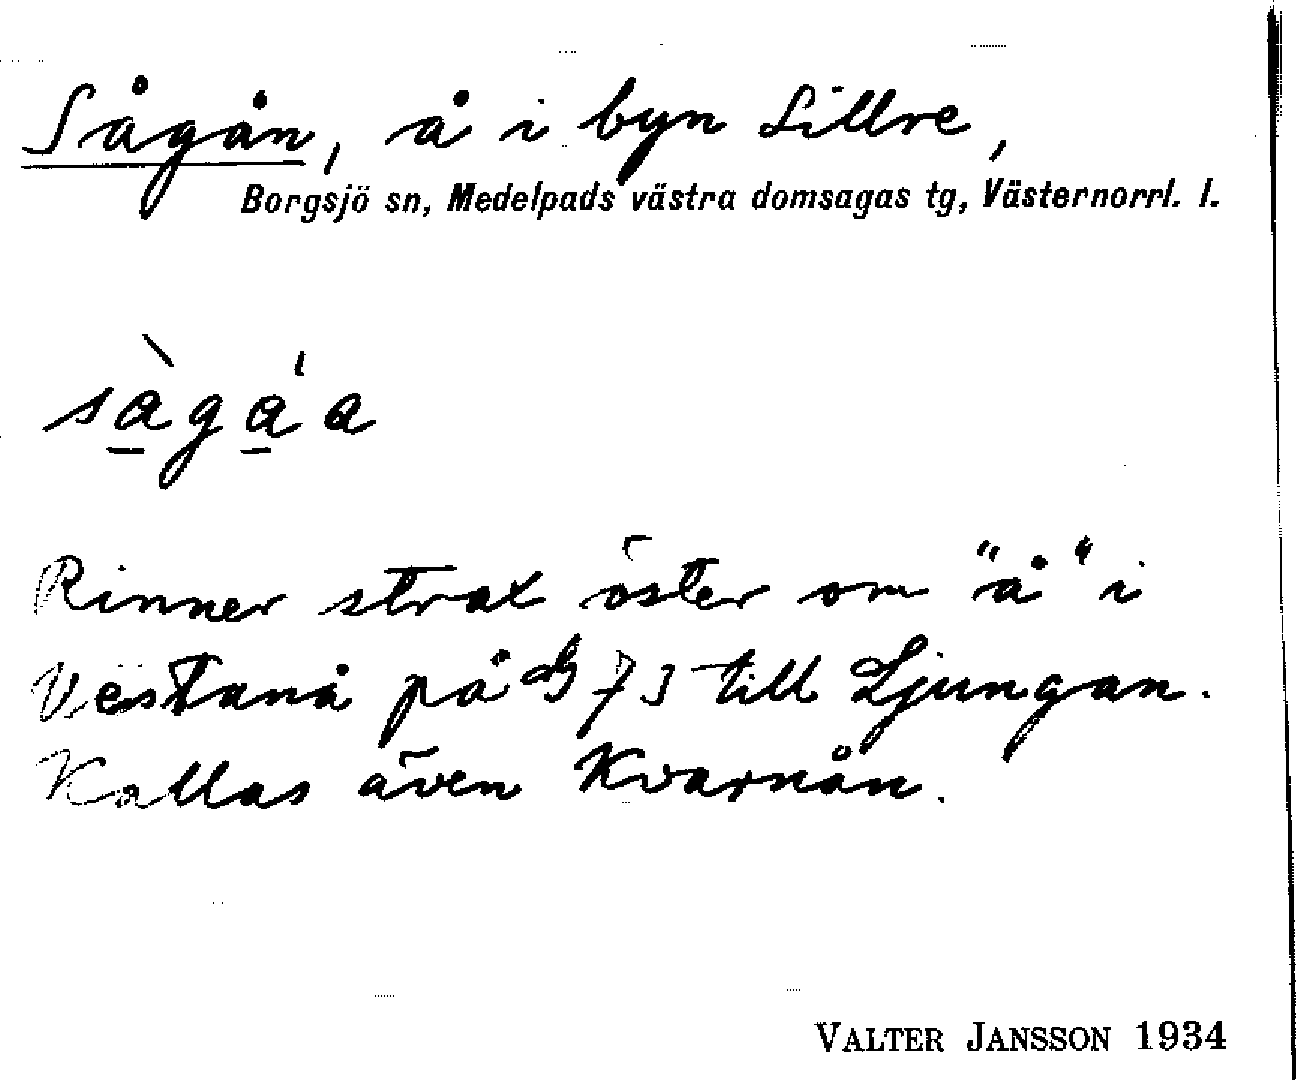 Sågån, å i byn Lillre,
Borgsjö sn, Medelpads västra domsagas tg, Västernorrl. l.
sà̲ga̲̍a
Rinner strax öster om "å" i
Västanå på G 73 till Ljungan.
Kallas även Kvarnån.
VALTER JANSSON 1934